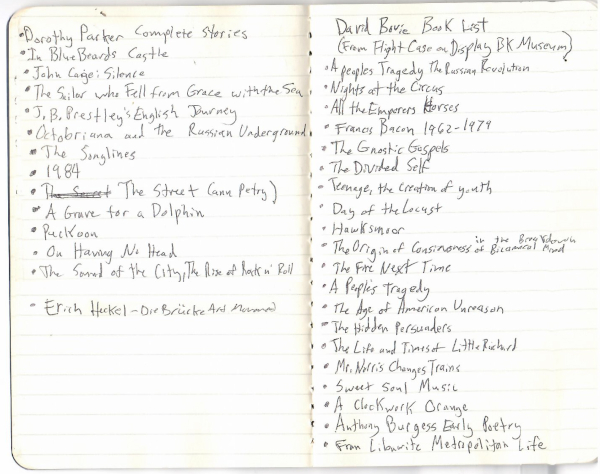 •Dorothy Parker Complete Stories
•In Blue Beards Castle
•John Cage: Silence
•The Sailor who Fell from Grace with the Sea
•J.B. Prestley's English Journey
•Octobriana and the Russian Underground
•The Songlines
•1984
•The Secret The Street (Ann Petry)
•A Grave for a Dolphin
•Puckoon
•On Having No Head
•The Sound of the City, The Rise of Rock n' Roll
•Erich Heckel - Die Brücke Art Movement
David Bowie Book List
(From Flight Case on Display BK Museum)
•A peoples Tragedy The Russian Revolution
•Nights at the Circus
•All the Emperors Horses
•Francis Bacon 1962-1979
•The Gnostic Gospels
•The Divided Self
•Teenage, the Creation of youth
•Day of the Locust
•Hawksmoor
•The Origin of Consciousness in the Breakdown of Bicameral Mind
•The Fire Next Time
•A People's Tragedy
•The Age of American Unreason
•The Hidden Persuaders
•The Life and Times of Little Richard
•Mr. Norris Changes Trains
•Sweet Soul Music
•A Clockwork Orange
•Anthony Burgess Early Poetry
•Fran Libowitz Metropolitan Life